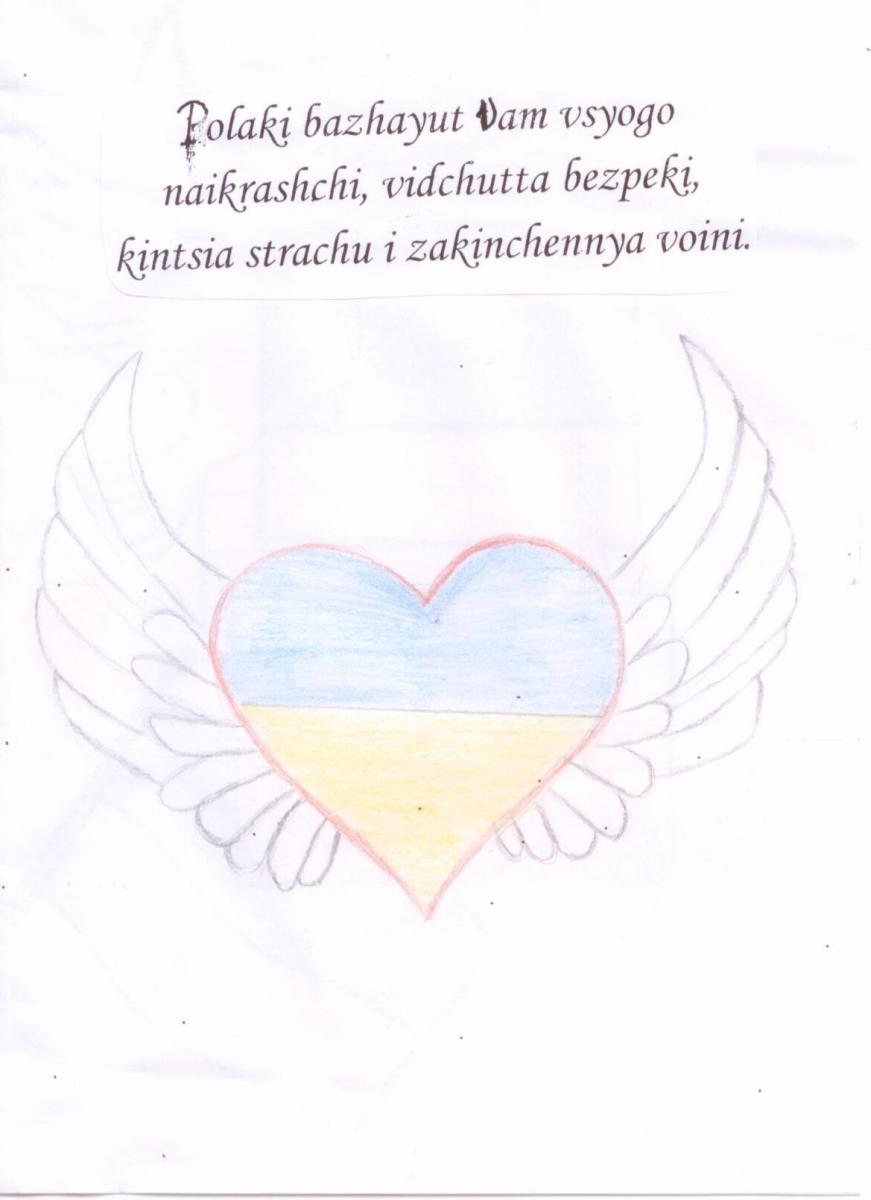 Polaki bazhayut Vam vsyogo
naikrashchi, vidchutta bezpeki,
kintsia strachu i zakinchennya voini.